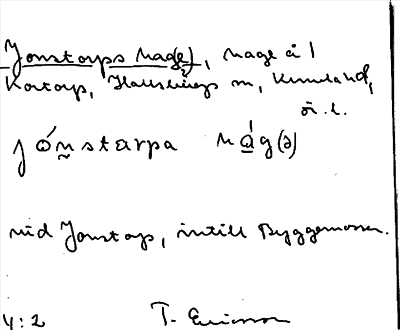 Jonstorps Hage(?), hage å 1
Kostorp, Hallsbergs sn, Kumla hd,
ö. l.
jó̰nstarpa hág(ə)
vid Jonstorp, intill Byggemossen.
4:2 T. Ericsson